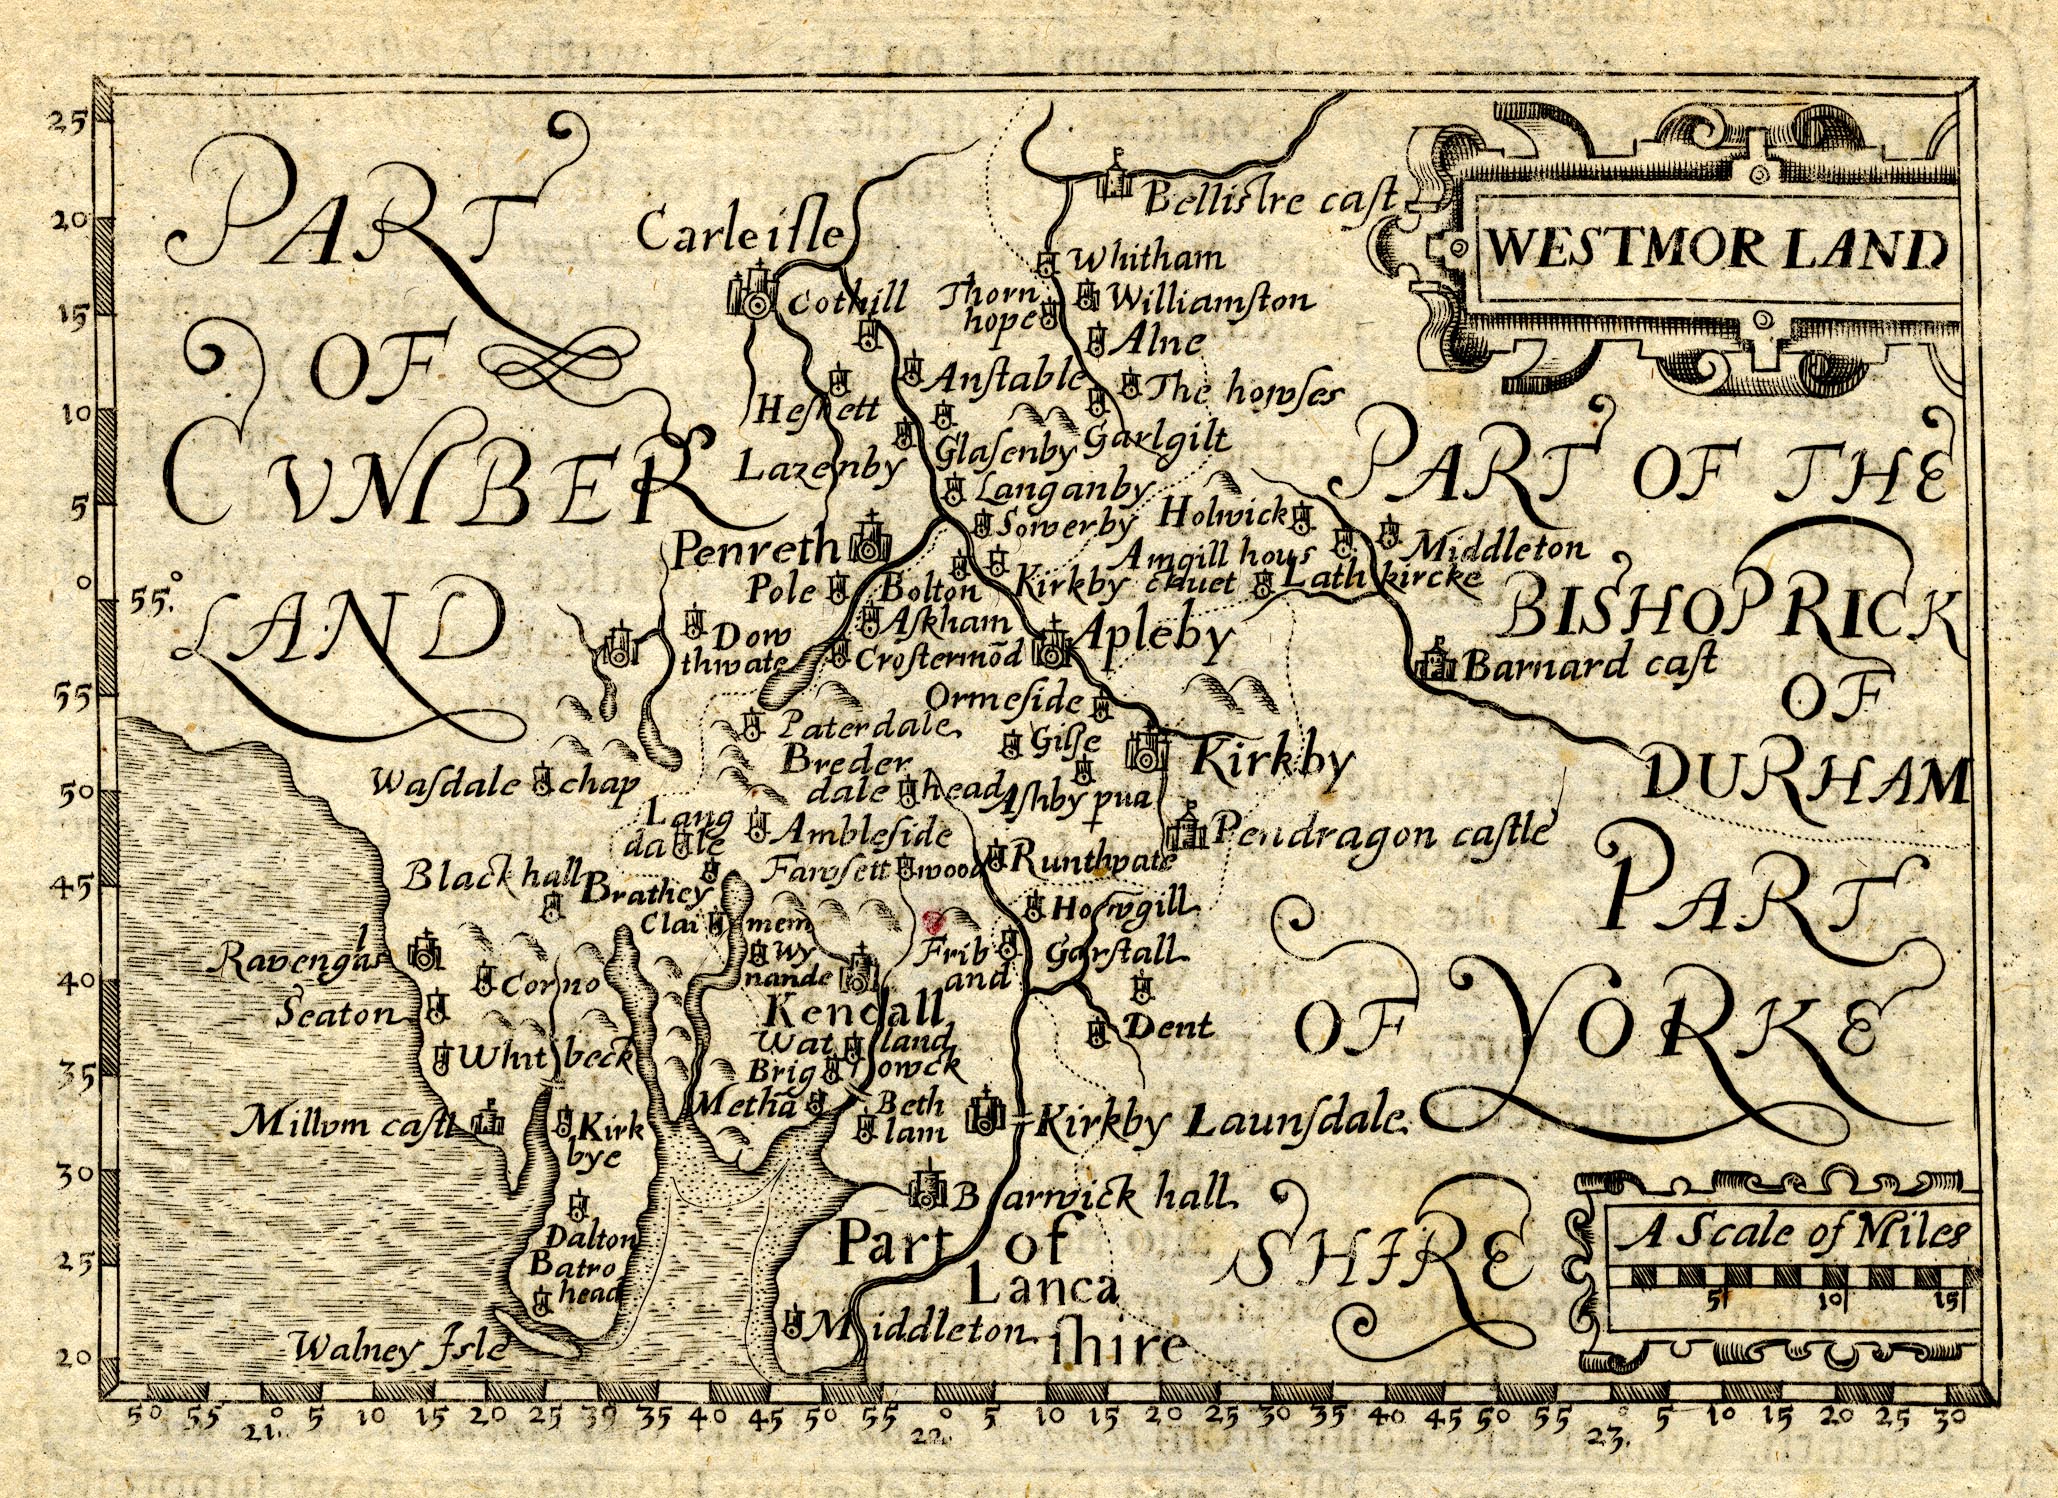 PART
OF
CVMBER
LAND
WESTMOR LAND
Carleiſle
Bellistre caſt
Cothill
Thorn
hope
Whitham
Williamſton
Alne
Anſtable
The howſes
Heſkett
Glaſenby
Garlgilt
Lazenby
Langanby
Sowerby
Holwick
PART OF THE
BISHOPRICK
OF
DURHAM
Penreth
Amgill hous
Middleton
Pole
Bolton
Kirkby
Lath kircke
Dow
thwate
Aſkham
Croſtermōd
Apleby
Barnard caſt
Ormeſide
Paterdale
Gilſe
Kirkby
Breder
dale head
Waſdale chap
Aſhby pua
Lang
dale
Ambleſide
Pendragon caſtle
Black hall
Brathey
Fawſett wood
Runthwate
PART
OF YORKE
SHIRE
Clai mem
Howgill
Ravenglas
Corno
Wy
nande
Frib
and
Garſtall
Seaton
Kendall
Dent
Whit beck
Wat land
Brig
Millvm caſtl
Kirk
bye
Methā
Beth
lam
Kirkby Launſdale
Barwick hall
Dalton
Batro
head
Part of
Lanca
ſhire
Walney Iſle
Middleton
A Scale of Miles
5 10 15
25
20
15
10
5
0
55.°
55
50
45
40
35
30
25
20
50 55 0 5 10 15 20 25 30 35 40 45 50 55 0 5 10 15 20 25 30 35 40 45 50 55 0 5 10 15 20 25 30
21. 22. 23.